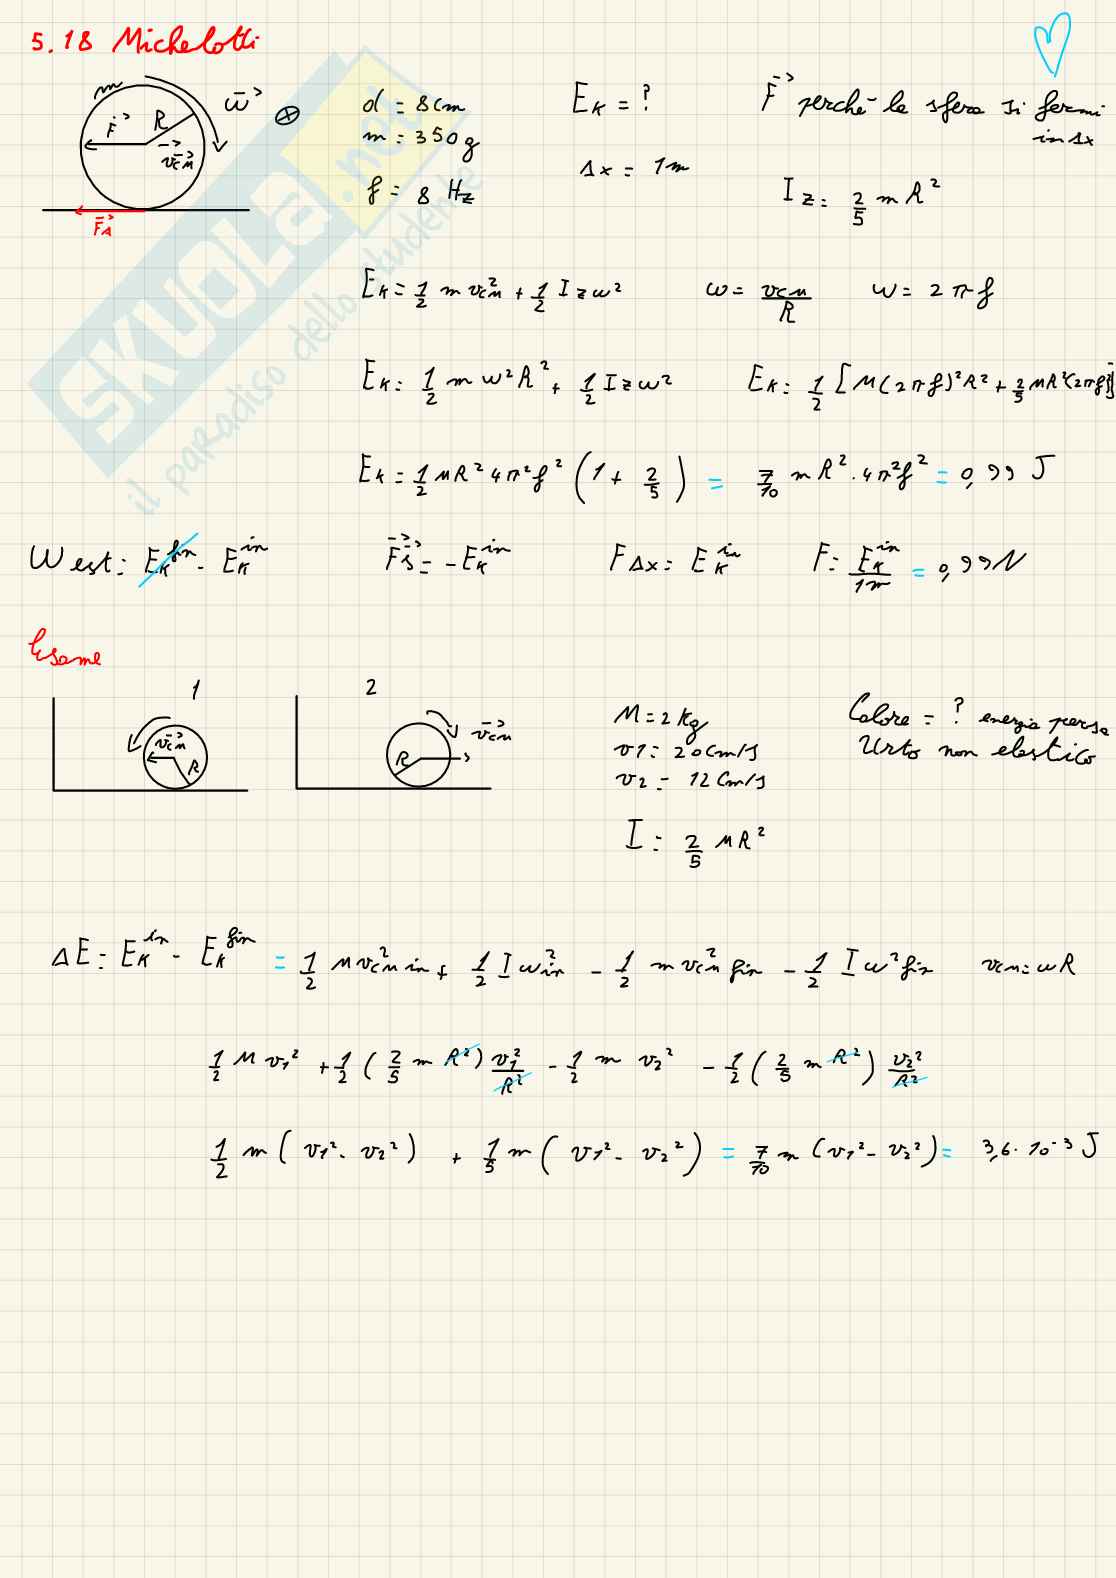 5.18 Michelotti
m R F⃗ v⃗cm ω⃗ ⊗ F⃗A
d = 8 cm
m = 350 g
f = 8 Hz
EK = ?
Δx = 1m
F⃗ perché la sfera si fermi
in Δx
Iz = 2/5 m R²
EK = 1/2 m vcm² + 1/2 Iz ω² ω = vcm/R ω = 2πf
EK = 1/2 m ω² R² + 1/2 Iz ω² EK = 1/2 [M(2πf)² R² + 2/5 MR²(2πf)²]
EK = 1/2 MR² 4π² f² (1 + 2/5) = 7/10 m R² · 4π² f² = 0,99 J
West = EK fin - EK in F⃗ s⃗ = - EK in FΔx = EK in F = EK in/1m = 0,99 N
Esame
1 2
v⃗cm R R v⃗cm
M = 2 Kg
v1 = 20 cm/s
v2 = 12 cm/s
I = 2/5 MR²
Calore = ? energia persa
Urto non elastico
ΔE = EK in - EK fin = 1/2 M vcm² in + 1/2 I ω² in - 1/2 m vcm² fin - 1/2 I ω² fin vcm = ωR
1/2 M v1² + 1/2 (2/5 m R²) v1²/R² - 1/2 m v2² - 1/2 (2/5 m R²) v2²/R²
1/2 m (v1² - v2²) + 1/5 m (v1² - v2²) = 7/10 m (v1² - v2²) = 3,6 · 10⁻³ J
SKUOLA.net
il paradiso dello studente